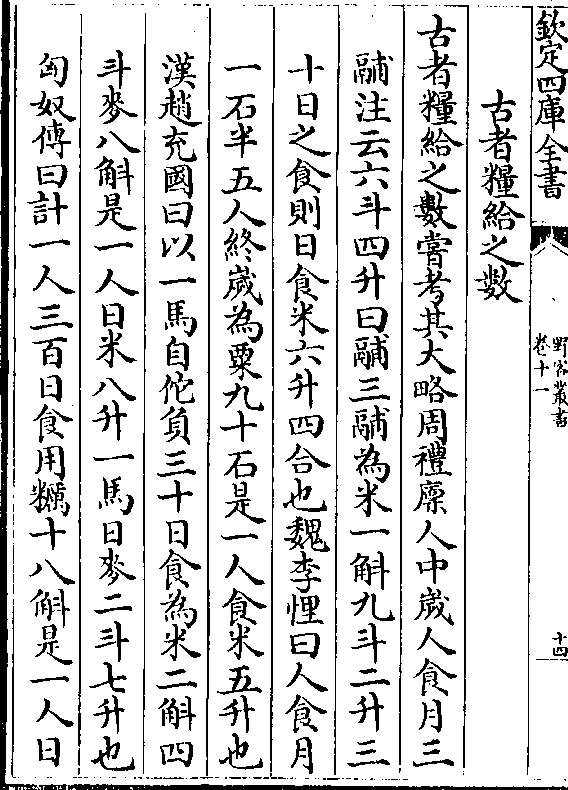 欽定四庫全書
野客叢書
卷十一
十四
古者糧給之數
古者糧給之數嘗考其大略周禮廩人中歲人食月三
鬴注云六斗四升曰鬴三鬴為米一斛九斗二升三
十日之食則日食米六升四合也魏李悝曰人食月
一石半五人終歲為粟九十石是一人食米五升也
漢趙充國曰以一馬自佗負三十日食為米二斛四
斗麥八斛是一人日米八升一馬日麥二斗七升也
匈奴傳曰計一人三百日食用糒十八斛是一人日